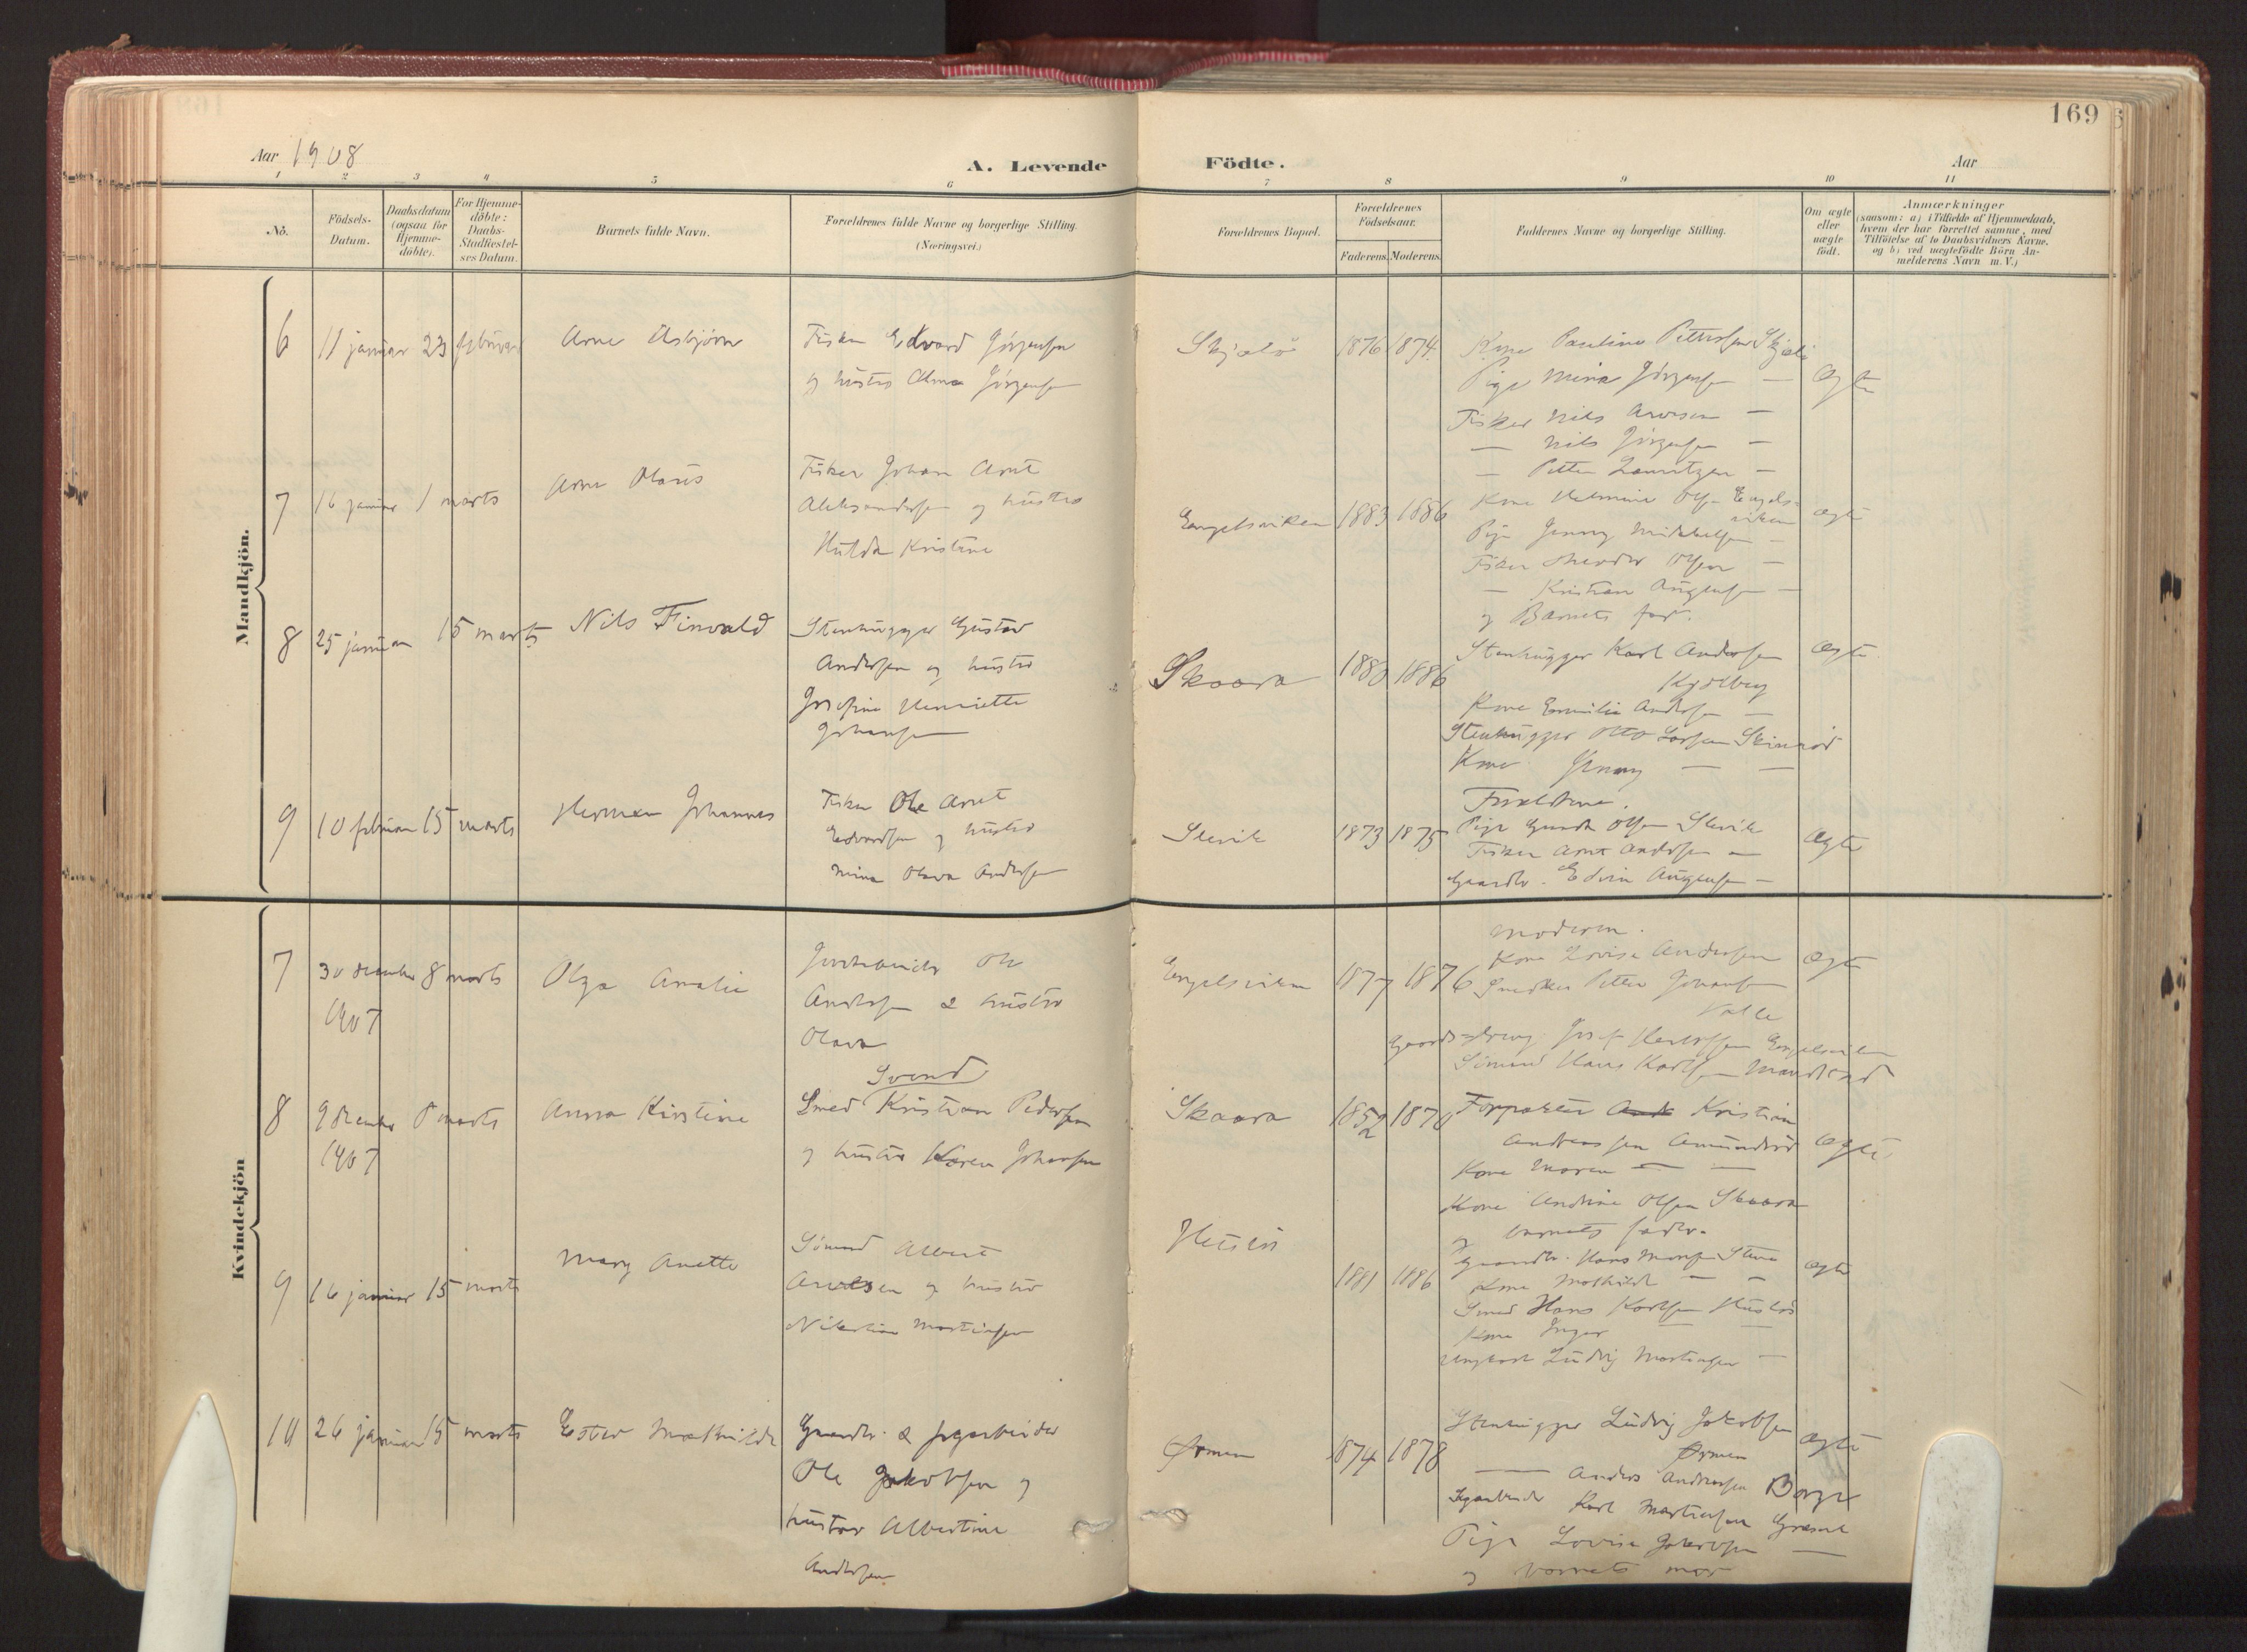 169
Aar 1908
A. Levende Födte.
Aar
1 2 3 4 5 6 7 8 9 10 11
Nö.
Födsels-Datum.
Daabsdatum (ogsaa for Hjemme-döbte).
For Hjemme-döbte: Daabs-Stadfæstel-ses Datum.
Barnets fulde Navn.
Forældrenes fulde Navne og borgerlige Stilling. (Næringsvei.)
Forældrenes Bopæl.
Forældrenes Födselsaar.
Faderens. Moderens.
Faddernes Navne og borgerlige Stilling.
Om ægte eller uægte födt.
Anmærkninger
(saasom: a) i Tilfælde af Hjemmedaab,
hvem der har forrettet samme, med
Tilföielse af to Daabsvidners Navne.
og b) ved uægtefödte Börn An-
melderens Navn m. V.)
Mandkjön.
6 11 januar 23 februar Arne Asbjørn
Fisker Edvard Jørgensen
og hustru Alma Jørgensen
Skjælø 1876 1874
Kone Pauline Pettersen Skjælø
Pige Mina Jørgensen —
Ægte
Fisker Nils Arvesen —
— Nils Jørgensen —
— Petter Lauritzen —
7 16 januar 1 marts Arne Olaus
Fisker Johan Arnt
Aleksandersen og hustru
Hulda Kristine
Engelsviken 1883 1886
Kone Helmine Olsen Engels-
viken
Ægte
Pige Jenny Mikkelsen —
Fisker Olsen —
— Kristian Augensen —
og Barnets far.
8 25 januar 15 marts Nils Finvald
Stenhugger Gustav
Andersen og hustru
Josefine Henriette
Johansen
Skaara 1880 1886
Stenhugger Karl Andersen
Ægte
Kone Emilie Andersen —
Stenhugger Otto Larsen
Kone Jenny — —
Forældrene.
9 10 februar 15 marts Herman Johannes
Fisker Ole Arnt
Edvardsen og hustru
Mina Olava Andersen
Slevik 1873 1875
Pige Gunda Olsen Slevik
Ægte
Fisker Arnt Andersen —
Gaardbr. Edvin Augensen —
Kvindekjön
7 30 december 8 marts
1907
Olga Amalie
Ole
Andersen & hustru
Olava
Engelsviken 1877 1876
Moderen.
Kone Lovise Andersen
Ægte
Snedker Petter Johansen
Valle
Gaardbr. Josef Engelsviken
Sømand Hans Karlsen
8 9 december 8 marts
1907
Anna Kirstine
Svend
Smed Kristian Pedersen
og hustru Karen Johansen
Skaara 1852 1870
Forpagter Kristian
Andreassen
Ægte
Kone Maren — —
Kone Andrine Olsen Skaara
og barnets fader.
9 16 januar 15 marts Mary Anette
Sømand Albert
Arvesen og hustru
Martinsen
1881 1886
Gaardbr. Hans
Ægte
Kone Mathilde — —
Smed Hans Karlsen
Kone Inger — —
Ungkarl Ludvig Martinsen —
10 26 januar 15 marts Ester Mathilde
Gaardbr. &
Ole Jakobsen og
hustru Albertine
Andersen
Ørmen 1874 1878
Stenhugger Ludvig Jakobsen
Ørmen
Ægte
— Anders Andreassen Borge
Karl Martinsen
Pige Lovise Jakobsen —
og barnets mor